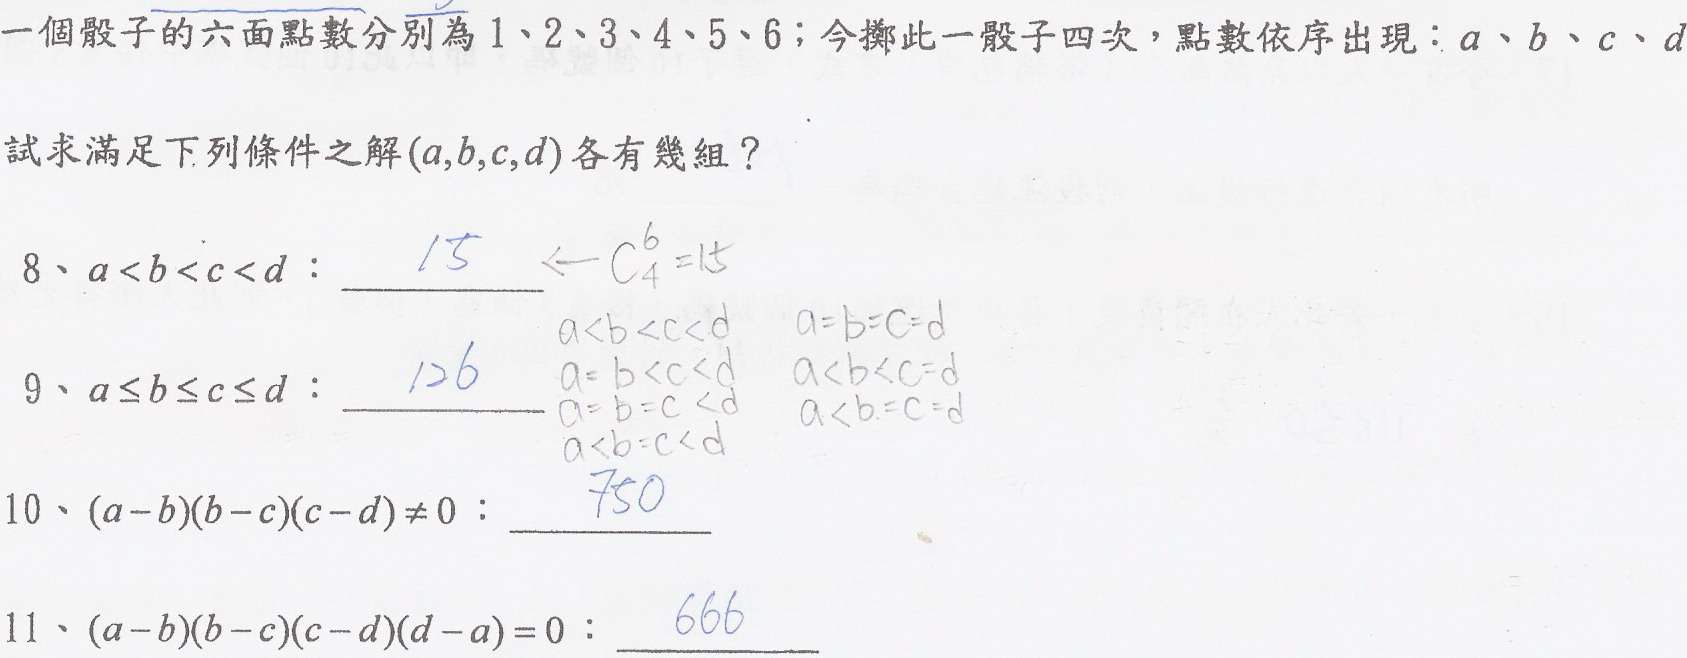 一個骰子的六面點數分別為 1、2、3、4、5、6；今擲此一骰子四次，點數依序出現：a、b、c、d
試求滿足下列條件之解(a,b,c,d)各有幾組？
8、a<b<c<d： 15 ← C⁶₄=15
a<b<c<d a=b=c=d
9、a≤b≤c≤d： 126 a=b<c<d a<b<c=d
a=b=c<d a<b=c=d
a<b=c<d
10、(a−b)(b−c)(c−d)≠0： 750
11、(a−b)(b−c)(c−d)(d−a)=0： 666